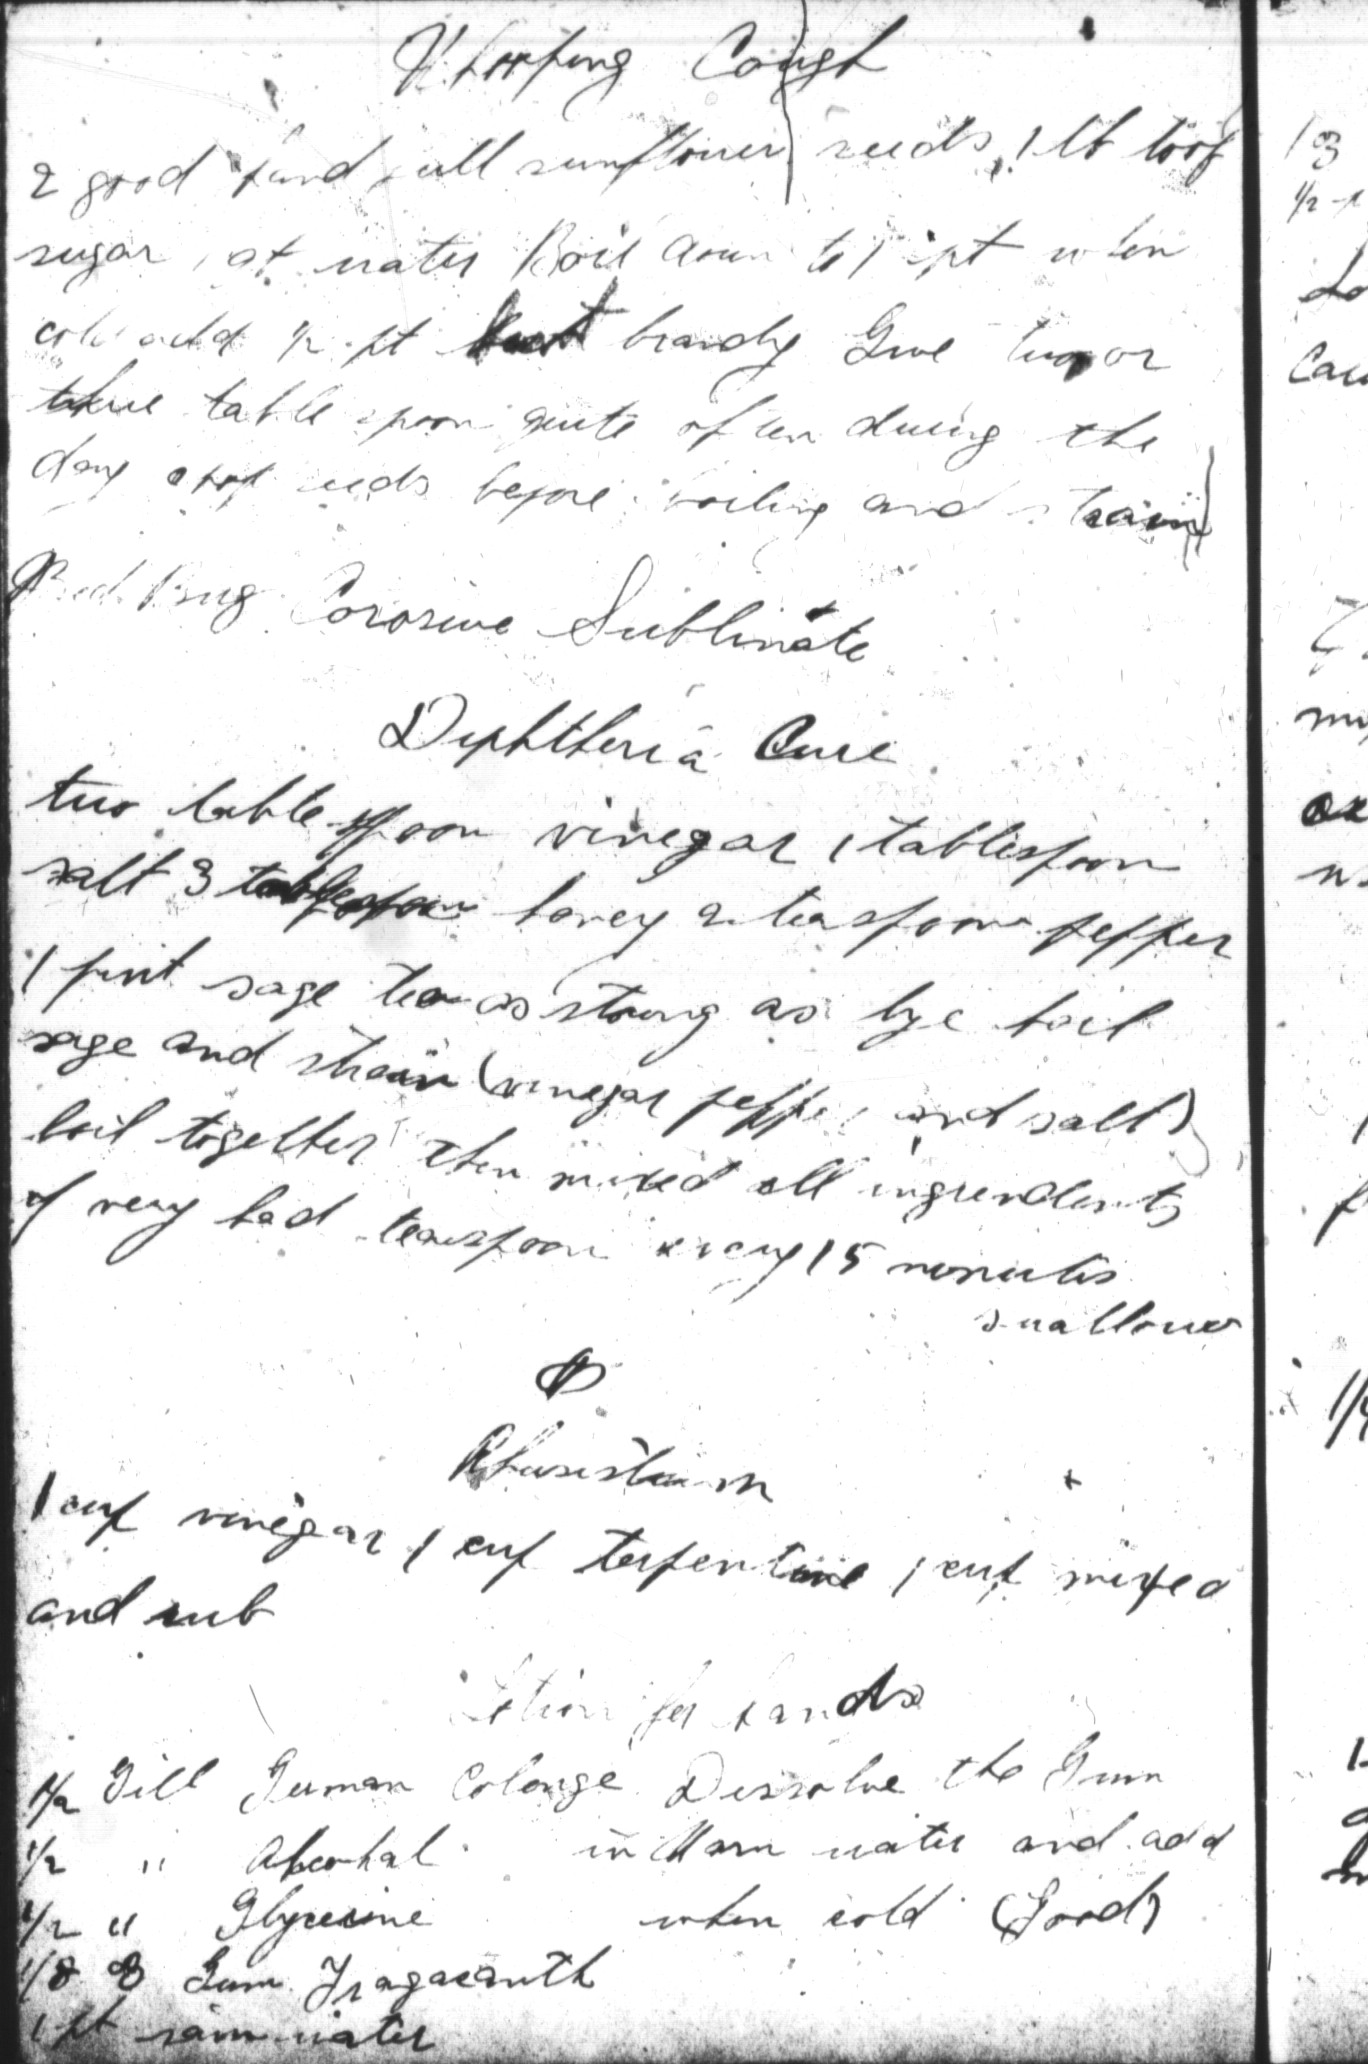 Whooping Cough
2 good hand full sunflower seeds, 1 lb loaf
sugar 1 qt water Boil down to 1 pt when
cold add 1/2 pt best brandy Give two or
three table spoon quite often during the
day seeds before boiling and strain
Bed Bug Corosive Sublimate
Diphtheria Cure
two table spoon vinegar 1 tablespoon
salt 3 tablespoon honey 2 teaspoon pepper
1 pint sage tea as strong as lye boil
sage and strain (vinegar pepper and salt)
boil together then mixed all ingrendents
if very bad teaspoon every 15 minutes
swallow
Rheumatism
1 cup vinegar 1 cup terpentine 1 cup mixed
and rub
Lotion for hands
1/2 Gill German Colonge Dissolve the Gum
1/2 " Alcohal in Warm water and add
1/2 " Glycerine when cold (Good)
1/8 oz Gum Tragacanth
1 pt rain water
1 oz
1/2